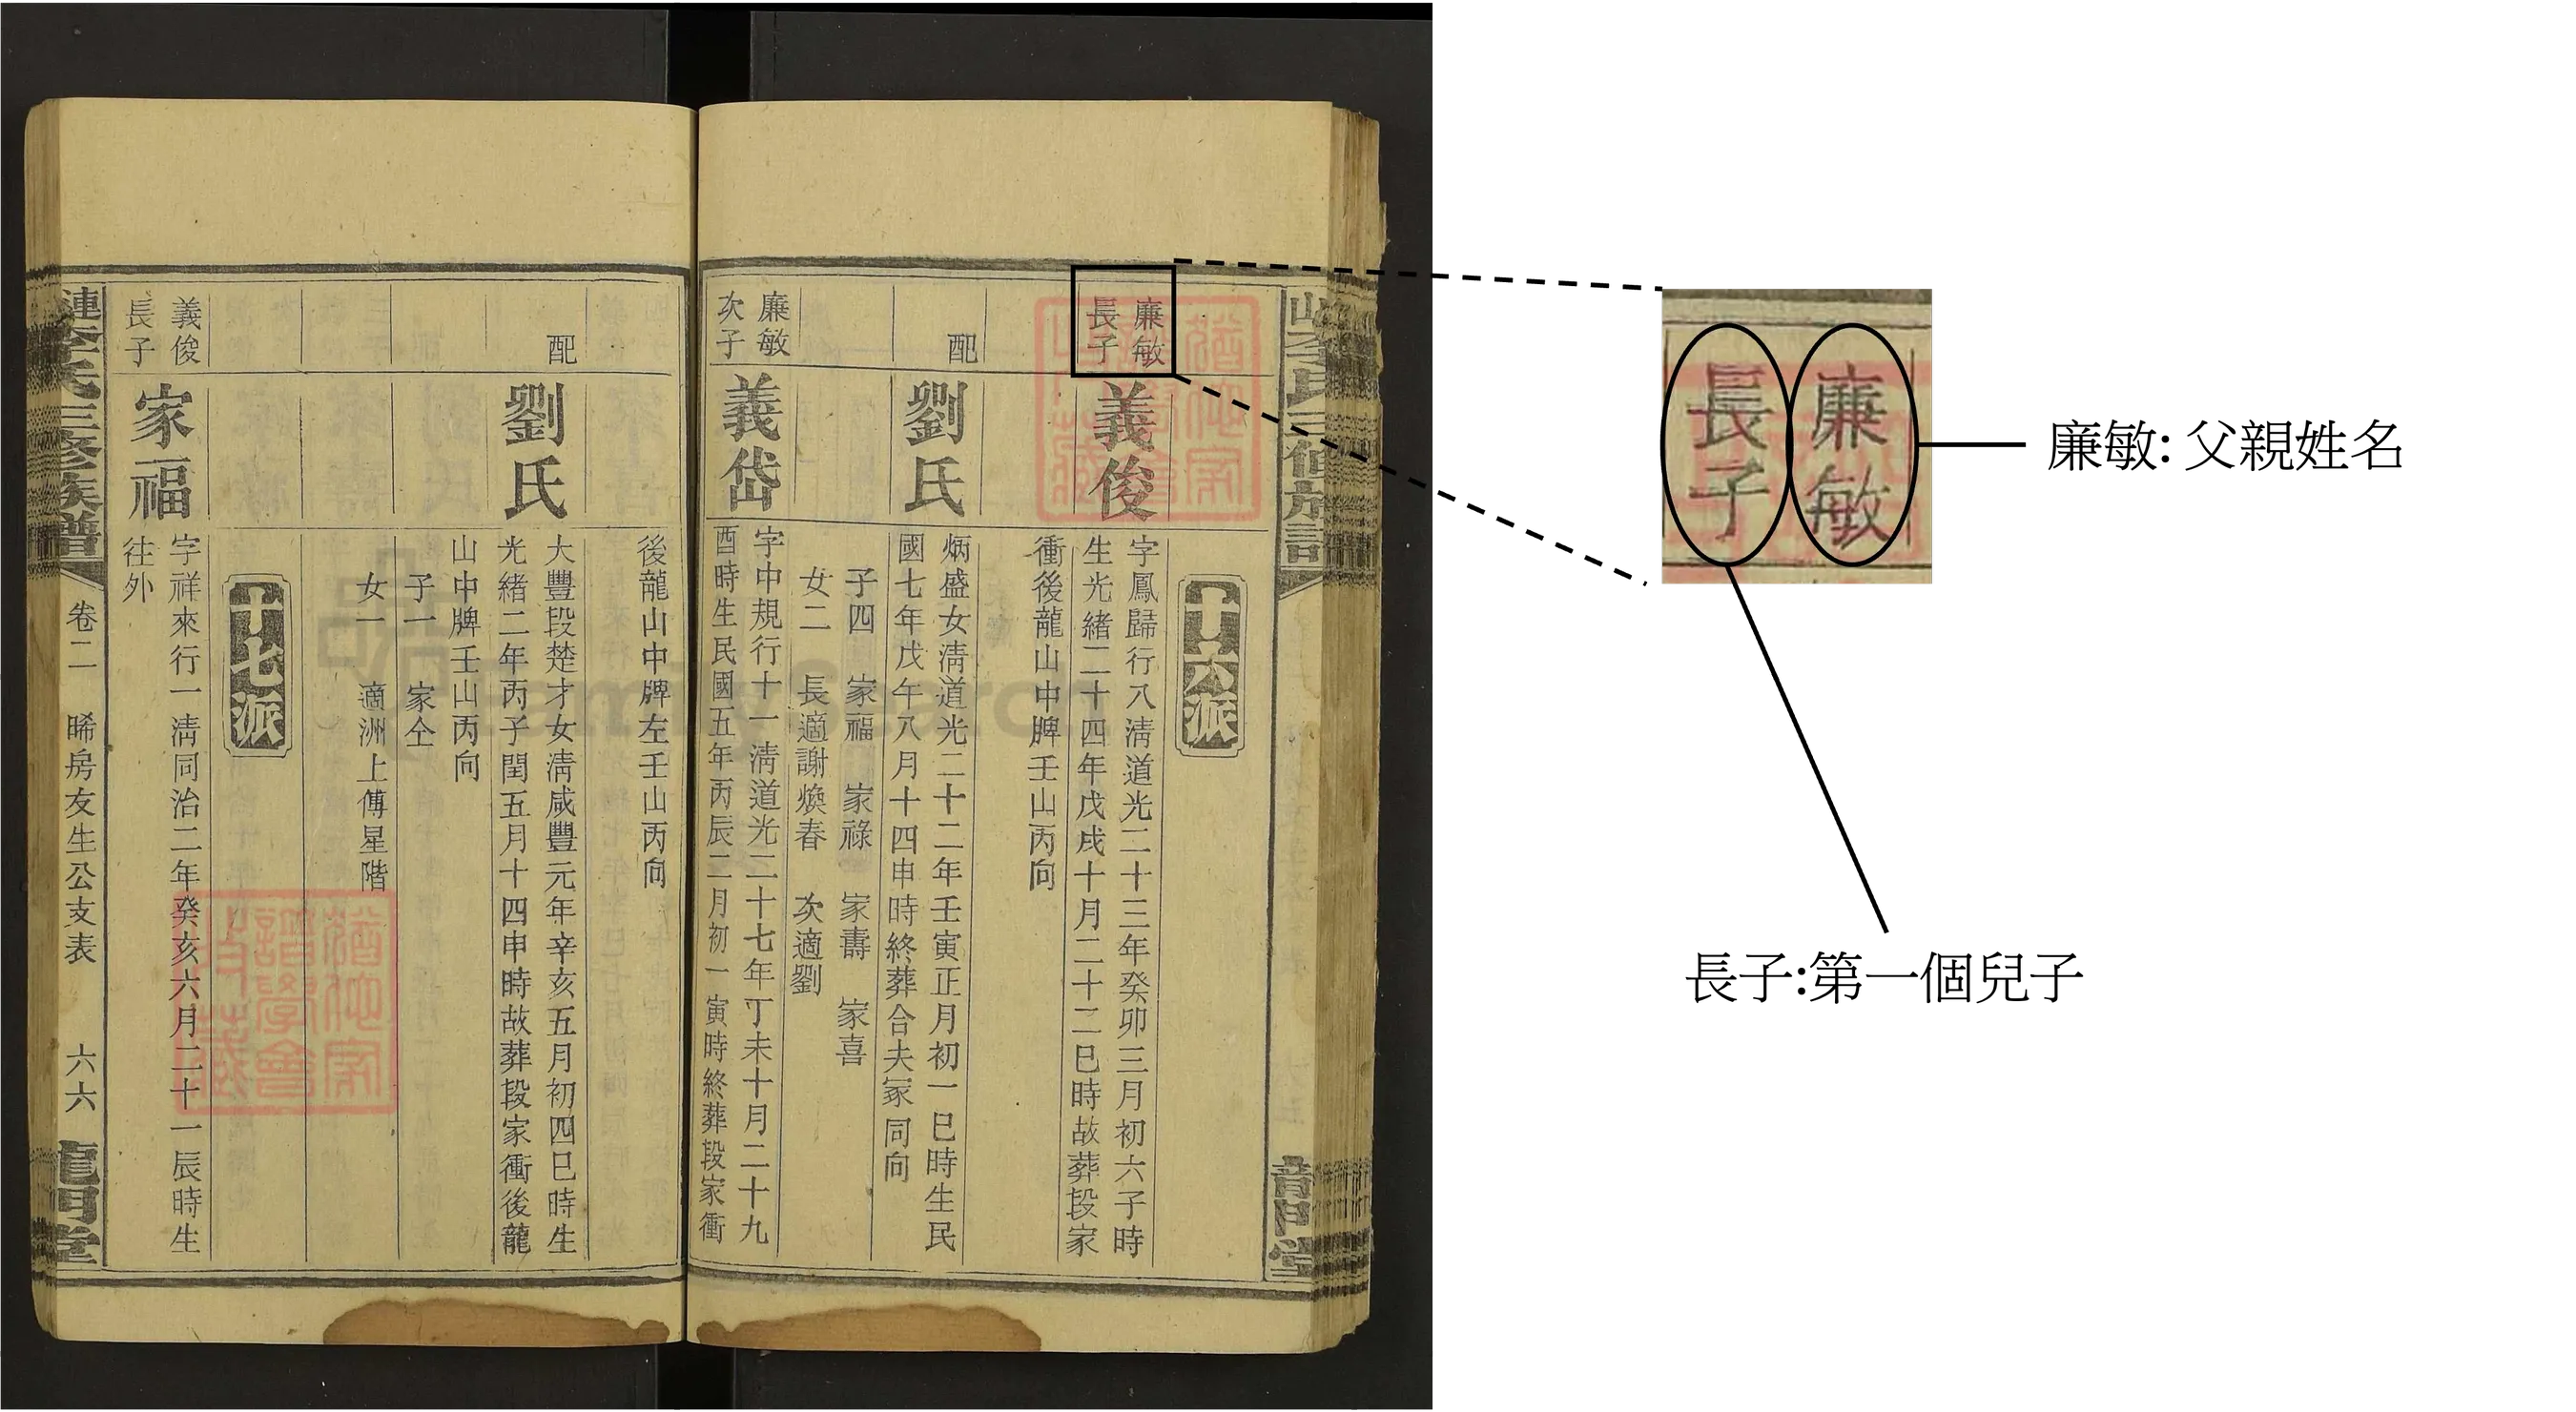 十六派
廉敏
長子
義俊
字鳳歸行八淸道光二十三年癸卯三月初六子時
生光緒二十四年戊戌十月二十二巳時故葬段家
衝後龍山中脾壬山丙向
配
劉氏
炳盛女淸道光二十二年壬寅正月初一巳時生民
國七年戊午八月十四申時終葬合夫冢同向
子四 家福 家祿 家壽 家喜
女二 長適謝煥春 次適劉
廉敏
次子
義岱
字中規行十一淸道光二十七年丁未十月二十九
酉時生民國五年丙辰二月初一寅時終葬段家衝
後龍山中脾左壬山丙向
配
劉氏
大豐段楚才女淸咸豐元年辛亥五月初四巳時生
光緒二年丙子閏五月十四申時故葬段家衝後龍
山中脾壬山丙向
子一 家仝
女一 適洲上傅星階
十七派
義俊
長子
家福
字祥來行一淸同治二年癸亥六月二十一辰時生
往外
漣李氏三修族譜
卷二 晞房友生公支表 六六
龍門堂
FamilySearch
廉敏
長子
廉敏: 父親姓名
長子:第一個兒子